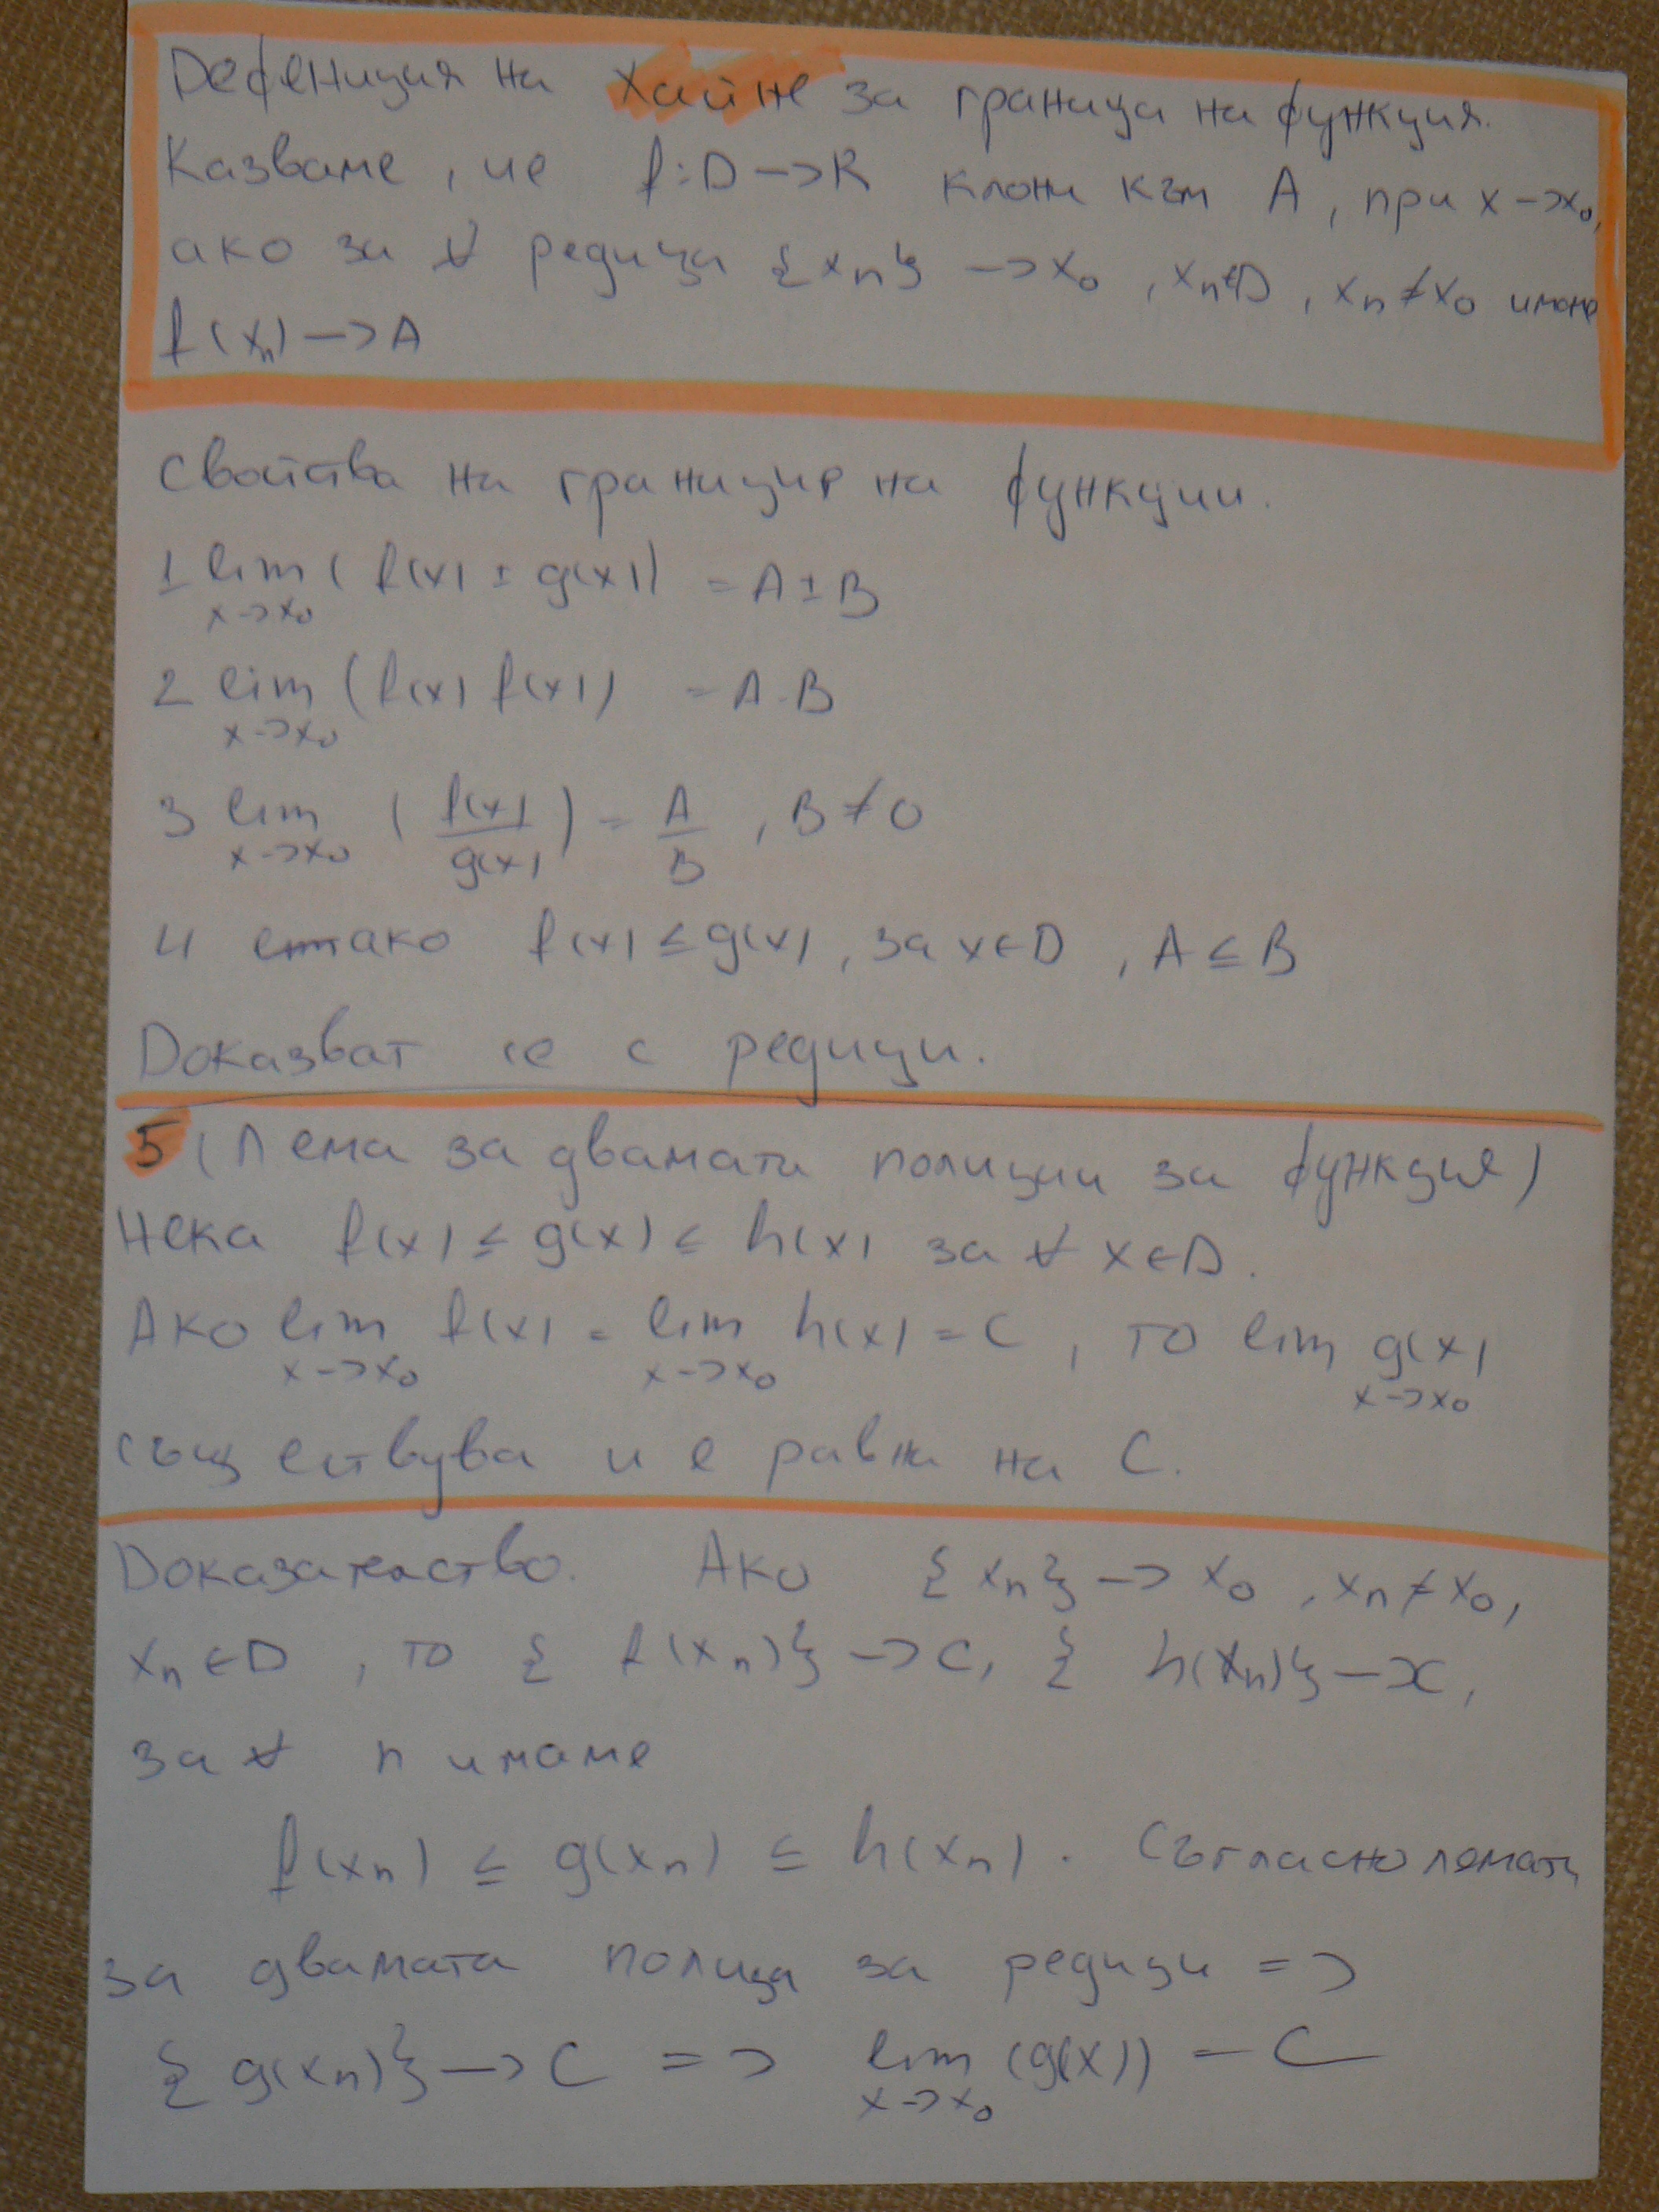 Дефениция на Хайне за граница на функция.
Казваме, че f:D->R клони към A, при x->x₀,
ако за ∀ редица {xₙ} ->x₀, xₙ∈D, xₙ≠x₀ имаме
f(xₙ)->A
Свойства на границие на функции.
1 lim (f(x) ± g(x)) = A±B
x->x₀
2 lim (f(x) f(x)) = A.B
x->x₀
3 lim (f(x)/g(x)) = A/B, B≠0
x->x₀
4 ако f(x)≤g(x), за x∈D, A≤B
Доказват се с редици.
5 (Лема за двамата полицаи за функция)
Нека f(x)≤g(x)≤h(x) за ∀ x∈D.
Ако lim f(x) = lim h(x) = C, то lim g(x)
x->x₀ x->x₀ x->x₀
съществува и е равна на C.
Доказателство. Ако {xₙ}->x₀, xₙ≠x₀,
xₙ∈D, то {f(xₙ)}->C, {h(xₙ)}->C,
за ∀ n имаме
f(xₙ) ≤ g(xₙ) ≤ h(xₙ). Съгласно лемата
за двамата полица за редици =>
{g(xₙ)}->C => lim (g(x)) = C
x->x₀